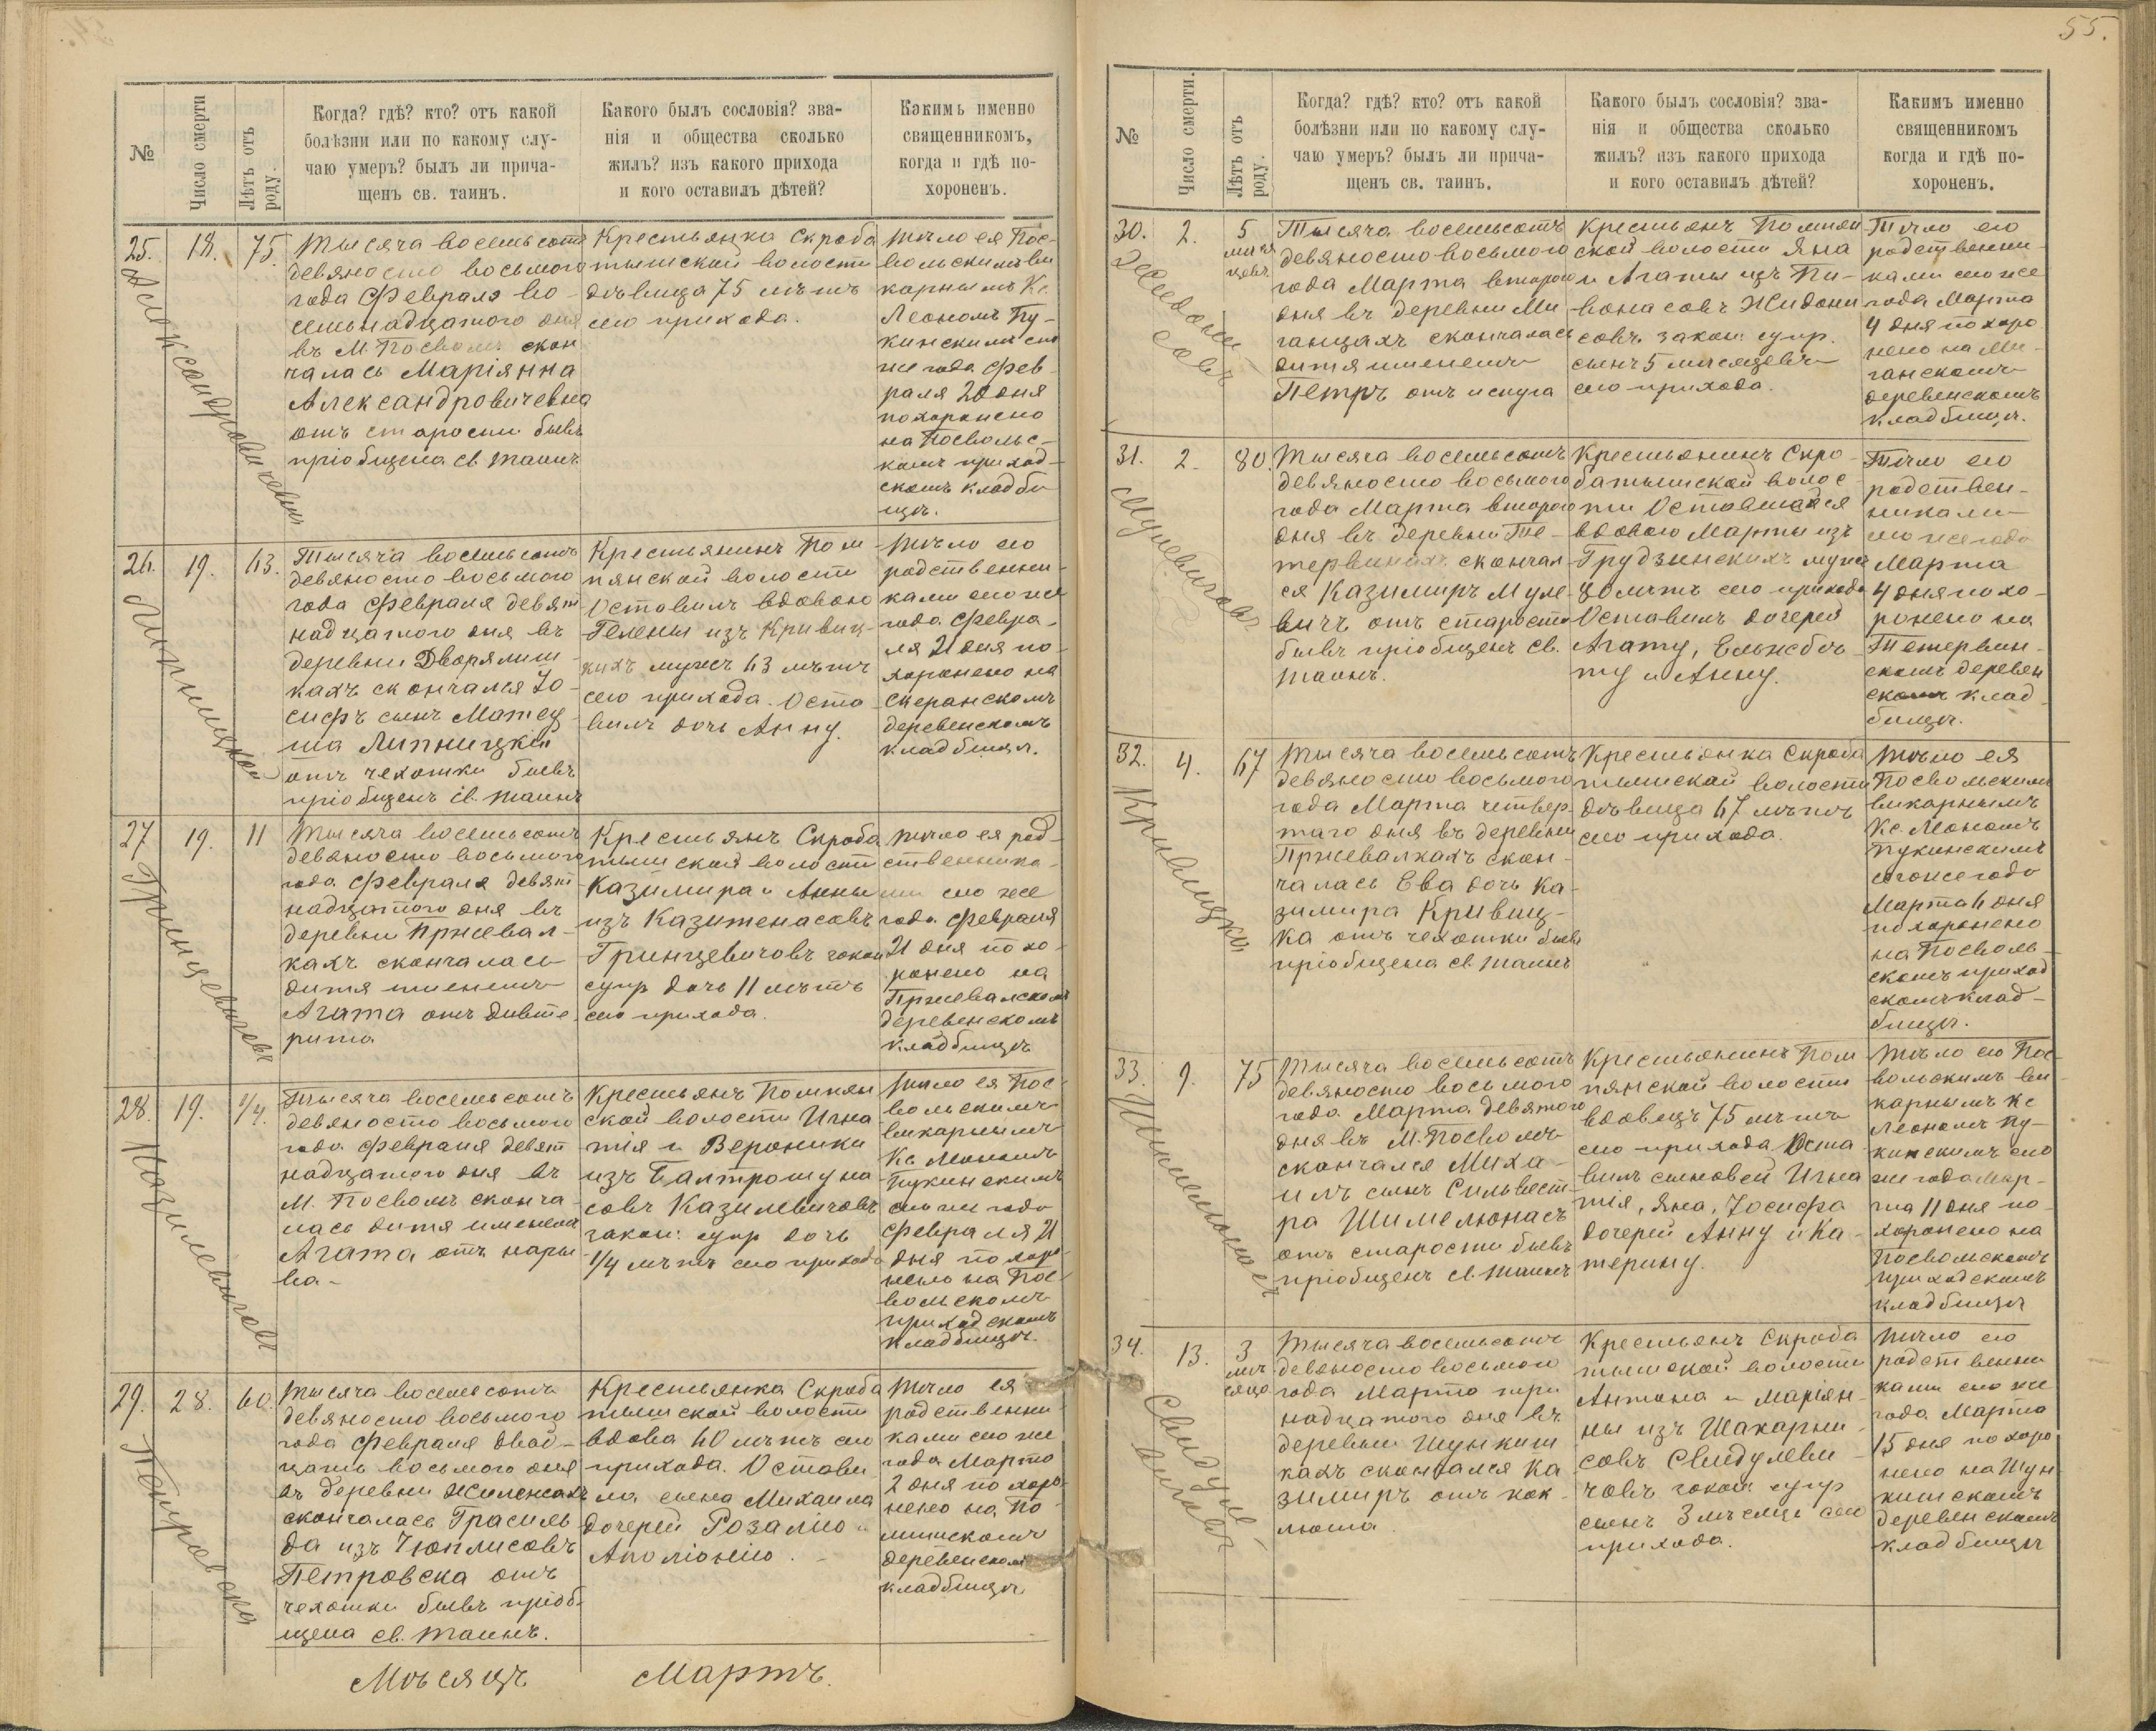 55.
№
Число смерти
Лѣтъ отъ роду.
Когда? гдѣ? кто? отъ какой
болѣзни или по какому слу-
чаю умеръ? былъ ли прича-
щенъ св. таинъ.
Какого былъ сословія? зва-
нія и общества сколько
жилъ? изъ какого прихода
и кого оставилъ дѣтей?
Какимъ именно
священникомъ,
когда и гдѣ по-
хороненъ.
25.
18.
75.
Александровичевна
Тысяча восемьсотъ
девяносто восьмого
года Февраля во-
семьнадцатого дня
въ М. Посволѣ скон
чалась Маріянна
Александровичевна
отъ старости бывъ
пріобщена св. таинъ
Крестьянка Скроба
тышской волости
дѣвица 75 лѣтъ
сего прихода.
тѣло ея Пос-
вольскимъ ви
карнымъ Кс.
Леономъ Пу-
кинскимъ сего
же года Фев-
раля 20 дня
похоронено
на Посвольс-
комъ приход-
скомъ кладби
щѣ.
26.
19.
63.
Липницкій
Тысяча восемьсотъ
девяносто восьмого
года Февраля девят
надцатого дня въ
деревни Дворялиш-
кахъ скончался Іо-
сифъ сынъ Матеу-
ша Липницкій
отъ чехотки бывъ
пріобщенъ св. таинъ
Крестьянинъ Пом
пянской волости
Оставилъ вдовою
Гелены изъ Кривиц-
кихъ мужъ 63 лѣтъ
сего прихода. Оста
вилъ дочь Анну.
тѣло его
родственни-
ками сего же
года Февра-
ля 21 дня по-
хоронено на
Скеранскомъ
деревенскомъ
кладбищѣ.
27
19.
11
Гринцевичовъ
Тысяча восемьсотъ
девяносто восьмого
года Февраля девят
надцатого дня въ
деревни Пржевал-
кахъ скончалась
дитя именемъ
Агата отъ дифте-
рита
Крестьянъ Скроба
тышской волости
Казимира и Анны
изъ Казитенасовъ
Гринцевичовъ закон
супр дочь 11 лѣтъ
сего прихода.
тѣло ея род-
ственника-
ми сего же
года Февраля
21 дня похо-
ронено на
Пржевалскомъ
деревенскомъ
кладбищѣ
28.
19.
1/4.
Казилевичовъ
Тысяча восемьсотъ
девяносто восьмого
года Февраля девят
надцатого дня въ
М. Посволѣ сконча-
лась дитя именемъ
Агата отъ нары-
ва-
Крестьянъ Помпян
ской волости Игна
тія и Вероники
изъ Балтрошуна
совъ Казилевичовъ
закон: супр дочь
1/4 лѣтъ сего прихода
тѣло ея Пос-
вольскимъ
викарнымъ
Кс. Леономъ
Пукинскимъ
сего же года
Февраля 21
дня похоро-
нено на Пос-
вольскомъ
приходскомъ
кладбищѣ.
29.
28.
60.
Петровска
Тысяча восемьсотъ
девяносто восьмого
года Февраля двад-
цать восьмого дня
въ деревни
скончалась Грасиль
да изъ Чюплисовъ
Петровска отъ
чехотки бывъ пріоб-
щена св. таинъ.
Крестьянка Скроба
тышской волости
вдова 60 лѣтъ сего
прихода. Остави
ла сына Михаила
дочерей Розалію и
Аполіонію.
тѣло ея
родственни
ками сего же
года Марта
2 дня похоро
нено на По-
мишскомъ
деревенскомъ
кладбищѣ.
Мѣсяцъ Мартъ.
№
Число смерти.
Лѣтъ отъ роду.
Когда? гдѣ? кто? отъ какой
болѣзни или по какому слу-
чаю умеръ? былъ ли прича-
щенъ св. таинъ.
Какого былъ сословія? зва-
нія и общества сколько
жилъ? изъ какого прихода
и кого оставилъ дѣтей?
Какимъ именно
священникомъ
когда и гдѣ по-
хороненъ.
30.
2.
5
мѣся
цевъ
Жидони
совъ
Тысяча восемьсотъ
девяносто восьмого
года Марта второго
дня въ деревни Ми
ганцахъ скончалась
дитя именемъ
Петръ отъ испуга
Крестьянъ Помпян
ской волости Яна
и Агаты изъ Пи-
вонасовъ Жидони
совъ закон супр.
сынъ 5 мѣсяцевъ
сего прихода.
Тѣло его
родственни-
ками сего же
года Марта
4 дня похоро
нено на Ми-
ганскомъ
деревенскомъ
кладбищѣ.
31.
2.
80.
Мулевичовъ
Тысяча восемьсотъ
девяносто восьмого
года Марта второго
дня въ деревни Те-
тервинахъ скончал
ся Казимиръ Муле-
вичъ отъ старости
бывъ пріобщенъ св.
таинъ.
Крестьянинъ Скро-
батышской волос-
ти Оставшаяся
вдовою Марты изъ
Грудзинскихъ мужъ
80 лѣтъ сего прихода
Оставилъ дочерей
Агату, Ельжбѣ-
ту и Анну.
Тѣло его
родствен-
никами
сего же года
Марта
4 дня похо-
ронено на
Тетервин-
скомъ деревен
скомъ клад
бищѣ.
32.
4.
67
Кривицка
Тысяча восемьсотъ
девяносто восьмого
года Марта четвер-
таго дня въ деревни
Пржевалкахъ скон-
чалась Ева дочь Ка-
зимира Кривиц-
ка отъ чехотки бывъ
пріобщена св. таинъ
Крестьянка Скроба
тышской волости
дѣвица 67 лѣтъ
сего прихода.
тѣло ея
Посвольскимъ
викарнымъ
Кс. Леономъ
Пукинскимъ
сего же года
Марта 6 дня
похоронено
на Посволь-
скомъ приход
скомъ клад-
бищѣ.
33.
9.
75
Шимелюнасъ
Тысяча восемьсотъ
девяносто восьмого
года Марта девятого
дня въ М. Посволѣ
скончался Миха-
илъ сынъ Сильвест-
ра Шимелюнасъ
отъ старости бывъ
пріобщенъ св. таинъ
Крестьянинъ Пом
пянской волости
вдовецъ 75 лѣтъ
сего прихода Оста
вилъ сыновей Игна
тія, Яна, Іосифа
дочерей Анну и Ка-
терину.
тѣло его Пос-
вольскимъ ви
карнымъ Кс
Леономъ Пу-
кинскимъ сего
же года Мар-
та 11 дня по-
хоронено на
Посвольскомъ
приходскомъ
кладбищѣ
34.
13.
3
мѣ
сяца
Свидуле
вичовъ
Тысяча восемьсотъ
девяносто восьмого
года Марта три
надцатого дня въ
деревни Шункиш
кахъ скончался Ка
зимиръ отъ кок-
люша.
Крестьянъ Скроба
тышской волости
Антона и Маріян-
ны изъ Шакарни
совъ Свидулеви-
човъ закон супр
сынъ 3 мѣсяца сего
прихода.
тѣло его
родственни
ками сего же
года Марта
15 дня похоро
нено на Шун
кишскомъ
деревенскомъ
кладбищѣ